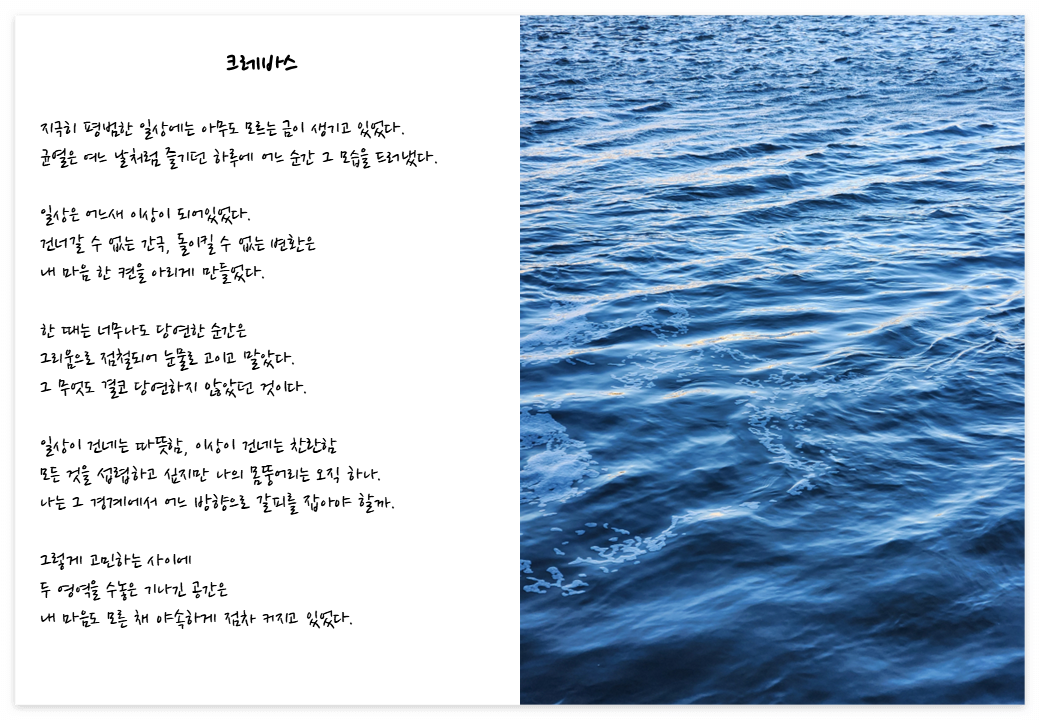 크레바스
지극히 평범한 일상에는 아무도 모르는 금이 생기고 있었다.
균열은 여느 날처럼 즐기던 하루에 어느 순간 그 모습을 드러냈다.
일상은 어느새 이상이 되어있었다.
건너갈 수 없는 간극, 돌이킬 수 없는 변환은
내 마음 한 켠을 아리게 만들었다.
한 때는 너무나도 당연한 순간은
그리움으로 점철되어 눈물로 고이고 말았다.
그 무엇도 결코 당연하지 않았던 것이다.
일상이 건네는 따뜻함, 이상이 건네는 찬란함
모든 것을 섭렵하고 싶지만 나의 몸뚱어리는 오직 하나.
나는 그 경계에서 어느 방향으로 갈피를 잡아야 할까.
그렇게 고민하는 사이에
두 영역을 수놓은 기나긴 공간은
내 마음도 모른 채 야속하게 점차 커지고 있었다.